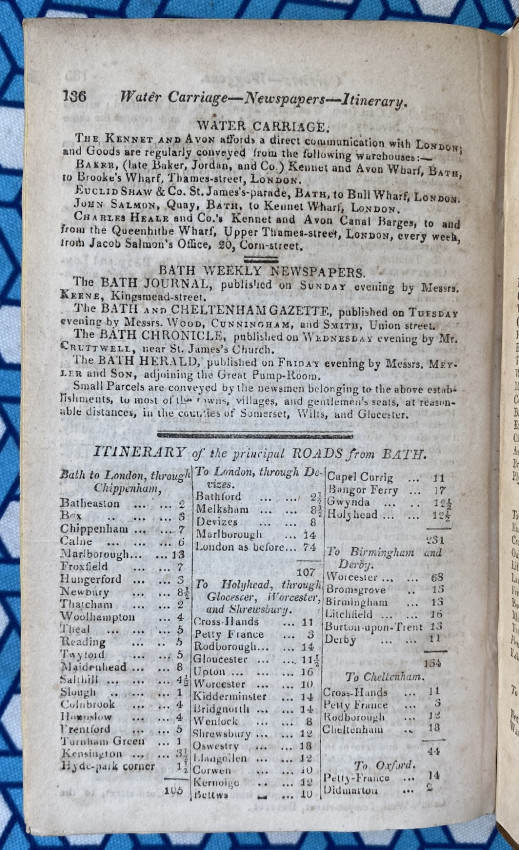 136 Water Carriage—Newspapers—Itinerary.
WATER CARRIAGE.
THE KENNET AND AVON affords a direct communication with LONDON;
and Goods are regularly conveyed from the following warehouses:—
BAKER, (late Baker, Jordan, and Co.) Kennet and Avon Wharf, BATH,
to Brooke's Wharf, Thames-street, LONDON.
EUCLID SHAW & Co. St. James's-parade, BATH, to Bull Wharf, LONDON.
JOHN SALMON, Quay, BATH, to Kennet Wharf, LONDON.
CHARLES HEALE and Co.'s Kennet and Avon Canal Barges, to and
from the Queenhithe Wharf, Upper Thames-street, LONDON, every week,
from Jacob Salmon's Office, 20, Corn-street.
BATH WEEKLY NEWSPAPERS.
The BATH JOURNAL, published on SUNDAY evening by Messrs.
KEENE, Kingsmead-street.
The BATH AND CHELTENHAM GAZETTE, published on TUESDAY
evening by Messrs. WOOD, CUNNINGHAM, and SMITH, Union street.
The BATH CHRONICLE, published on WEDNESDAY evening by Mr.
CRUTTWELL, near St. James's Church.
The BATH HERALD, published on FRIDAY evening by Messrs. MEY-
LER and SON, adjoining the Great Pump-Room.
Small Parcels are conveyed by the newsmen belonging to the above estab-
lishments, to most of the towns, villages, and gentlemen's seats, at reason-
able distances, in the counties of Somerset, Wilts, and Glocester.
ITINERARY of the principal ROADS from BATH.
Bath to London, through
Chippenham,
Batheaston ... ... 2
Box ... ... 3
Chippenham ... 7
Calne ... ... 6
Marlborough... ... 13
Froxfield ... ... 7
Hungerford ... 3
Newbury ... ... 8½
Thatcham ... 2
Woolhampton ... 4
Theal ... ... 5
Reading ... ... 5
Twyford ... ... 5
Maidenhead ... ... 8
Salthill ... ... 4½
Slough ... ... 1
Colnbrook ... ... 4
Hounslow ... ... 4
Brentford ... ... 5
Turnham Green ... 3
Kensington ... ... 3½
Hyde-park corner 1½
105
To London, through De-
vizes.
Bathford ... ... 2½
Melksham ... ... 8½
Devizes ... 8
Marlborough ... 14
London as before... 74
107
To Holyhead, through
Glocester, Worcester,
and Shrewsbury.
Cross-Hands ... 11
Petty France ... 3
Rodborough... ... 14
Gloucester ... ... 11½
Upton ... ... 16
Worcester ... ... 10
Kidderminster ... 14
Bridgnorth ... ... 14
Wenlock ... ... 8
Shrewsbury ... ... 12
Oswestry ... ... 18
Llangollen ... ... 12
Corwen ... ... 10
Kernioge ... ... 12
Bettws ... 10
Capel Currig ... 11
Bangor Ferry ... 17
Gwynda ... ... 12½
Holyhead ... ... 12½
231
To Birmingham and
Derby.
Worcester ... ... 68
Bromsgrove .. 13
Birmingham ... 13
Litchfield ... ... 16
Burton-upon-Trent 13
Derby ... ... 11
134
To Cheltenham.
Cross-Hands ... 11
Petty France ... 3
Rodborough ... 12
Cheltenham .. 18
44
To Oxford.
Petty-France ... 14
Didmarton ... 2